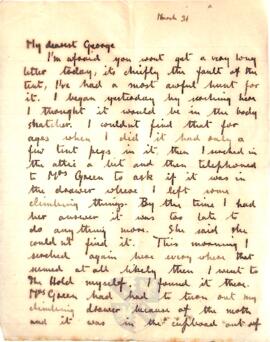 March 31
My dearest George
I'm afraid you wont get a very long
letter today, its chiefly the fault of the
tent, I've had a most awful hunt for
it. I began yesterday by searching here
I thought it would be in the body
stretcher. I couldnt find that for
ages when I did it had only a
few tent pegs in it then I searched in
the attic a bit and then telephoned
to Mrs Green to ask if it was in
the drawer where I left some
climbing things. By the time I had
her answer it was too late to
do anything more. She said she
could nt find it. This morning I
searched again here every where that
seemed at all likely then I went to
the Holt myself. I found it there.
Mrs Green had had to turn out my
climbing drawer because of the moths
and it was in the cupboard out of